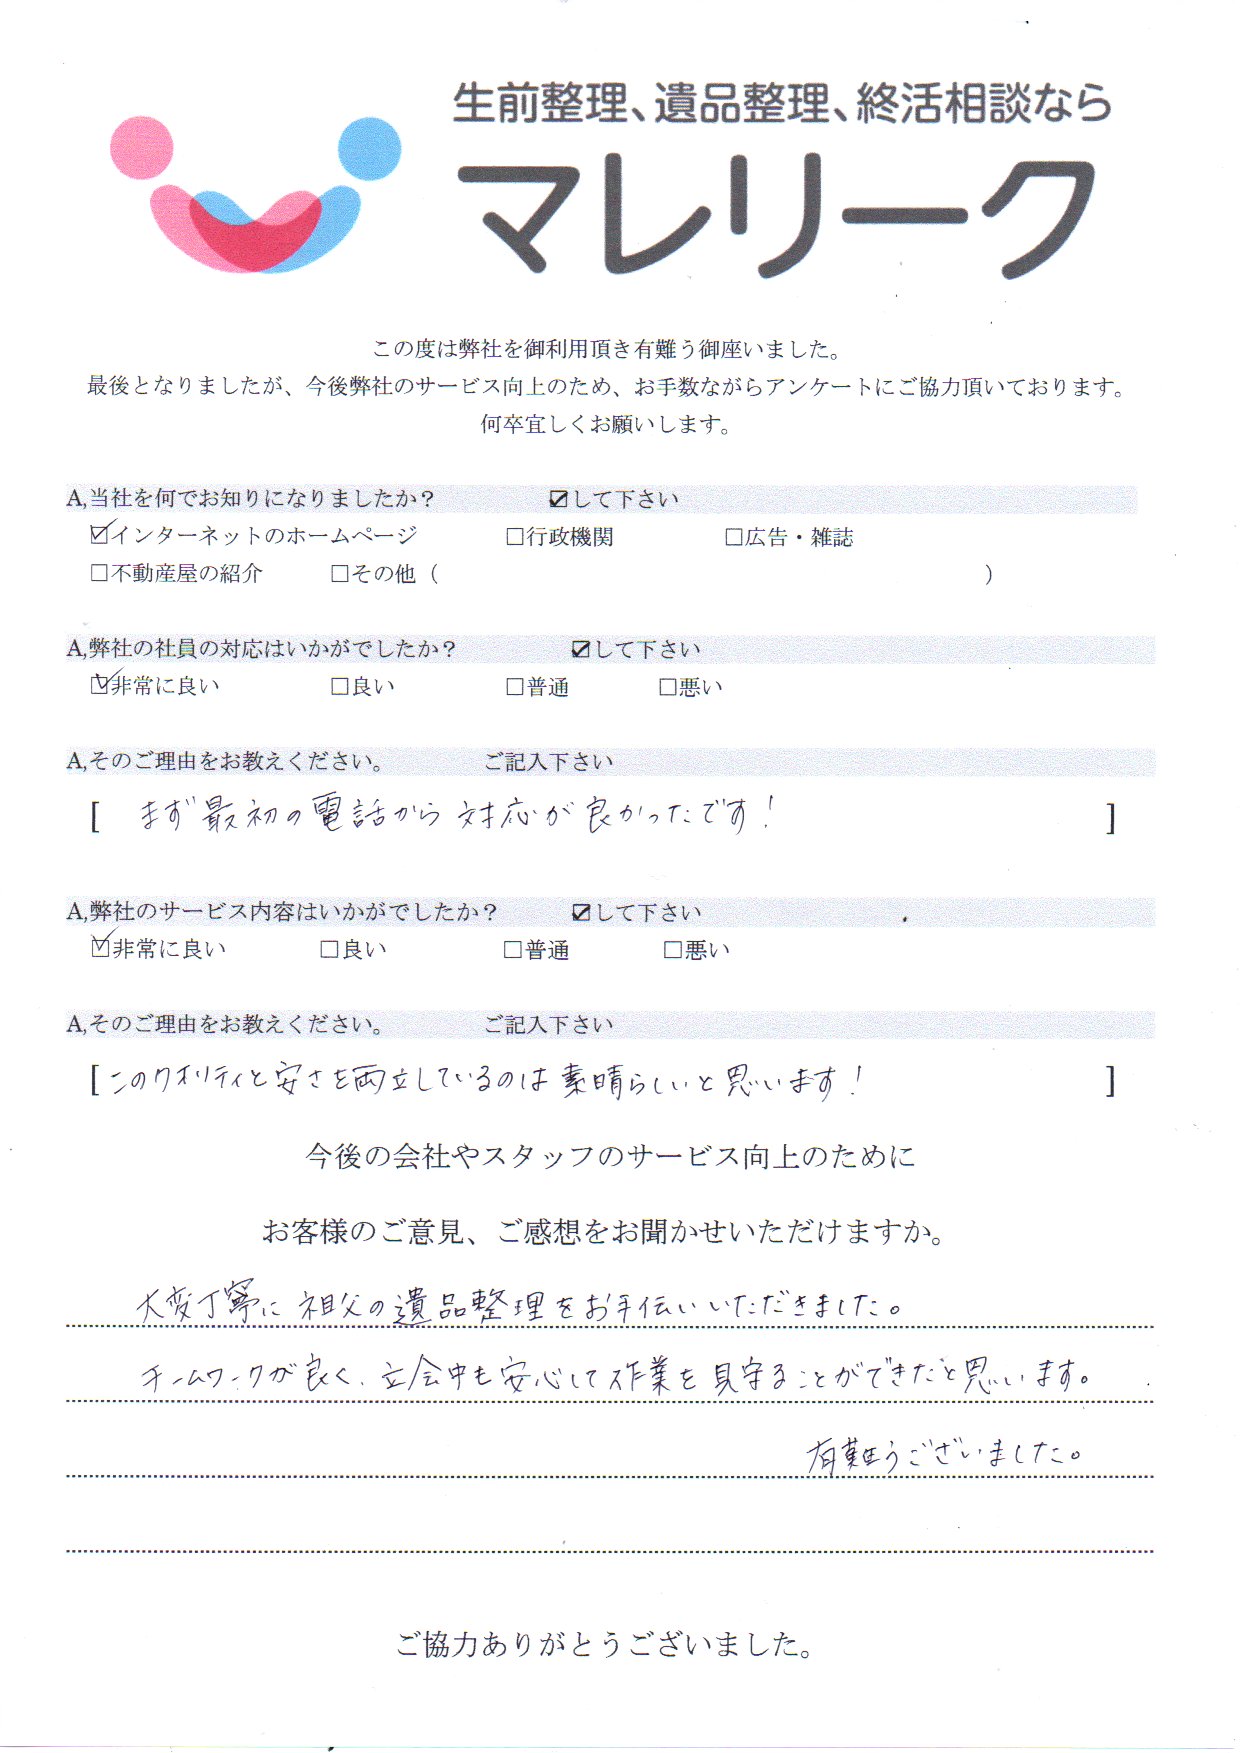 生前整理、遺品整理、終活相談なら
マレリーク
この度は弊社を御利用頂き有難う御座いました。
最後となりましたが、今後弊社のサービス向上のため、お手数ながらアンケートにご協力頂いております。
何卒宜しくお願いします。
A,当社を何でお知りになりましたか？ ☑して下さい
☑インターネットのホームページ □行政機関 □広告・雑誌
□不動産屋の紹介 □その他（ ）
A,弊社の社員の対応はいかがでしたか？ ☑して下さい
☑非常に良い □良い □普通 □悪い
A,そのご理由をお教えください。 ご記入下さい
[ まず最初の電話から対応が良かったです！ ]
A,弊社のサービス内容はいかがでしたか？ ☑して下さい
☑非常に良い □良い □普通 □悪い
A,そのご理由をお教えください。 ご記入下さい
[ このクオリティと安さを両立しているのは素晴らしいと思います！ ]
今後の会社やスタッフのサービス向上のために
お客様のご意見、ご感想をお聞かせいただけますか。
大変丁寧に祖父の遺品整理をお手伝いいただきました。
チームワークが良く、立会中も安心して作業を見守ることができたと思います。
有難うございました。
ご協力ありがとうございました。